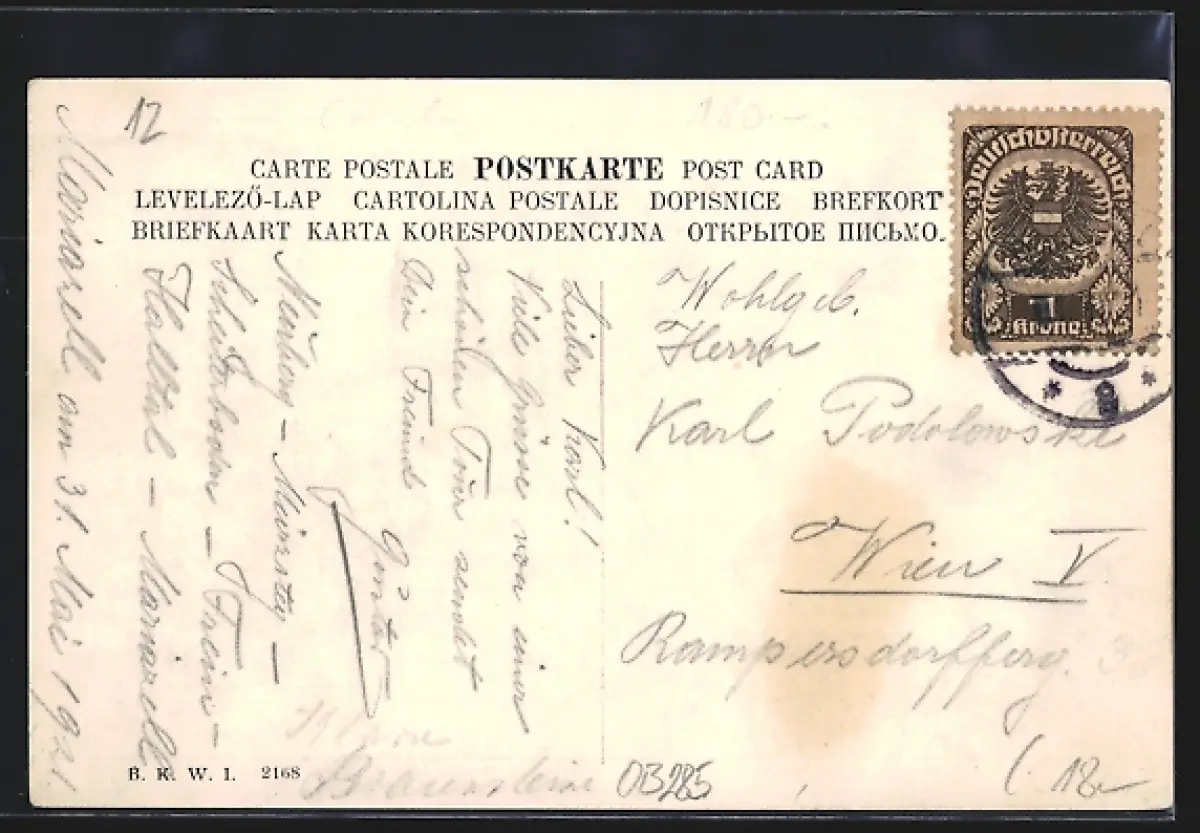 12
180.-
CARTE POSTALE POSTKARTE POST CARD
LEVELEZŐ-LAP CARTOLINA POSTALE DOPISNICE BREFKORT
BRIEFKAART KARTA KORESPONDENCYJNA ОТКРЫТОЕ ПИСЬМО.
Deutschösterreich
1
Krone
Wohlgeb.
Herrn
Karl Podolowski
Wien V.
Rampersdorfferg.
Lieber Karl!
Viele Grüsse von einer
schönen Tour sendet
Dein Freund
Günter
Neuberg - Mürzsteg -
Scheiterboden - Frein -
Halltal - Mariazell
Mariazell am 31. Mai 1921.
B. K. W. I. 2168
Braunsteine
OB285
18.-